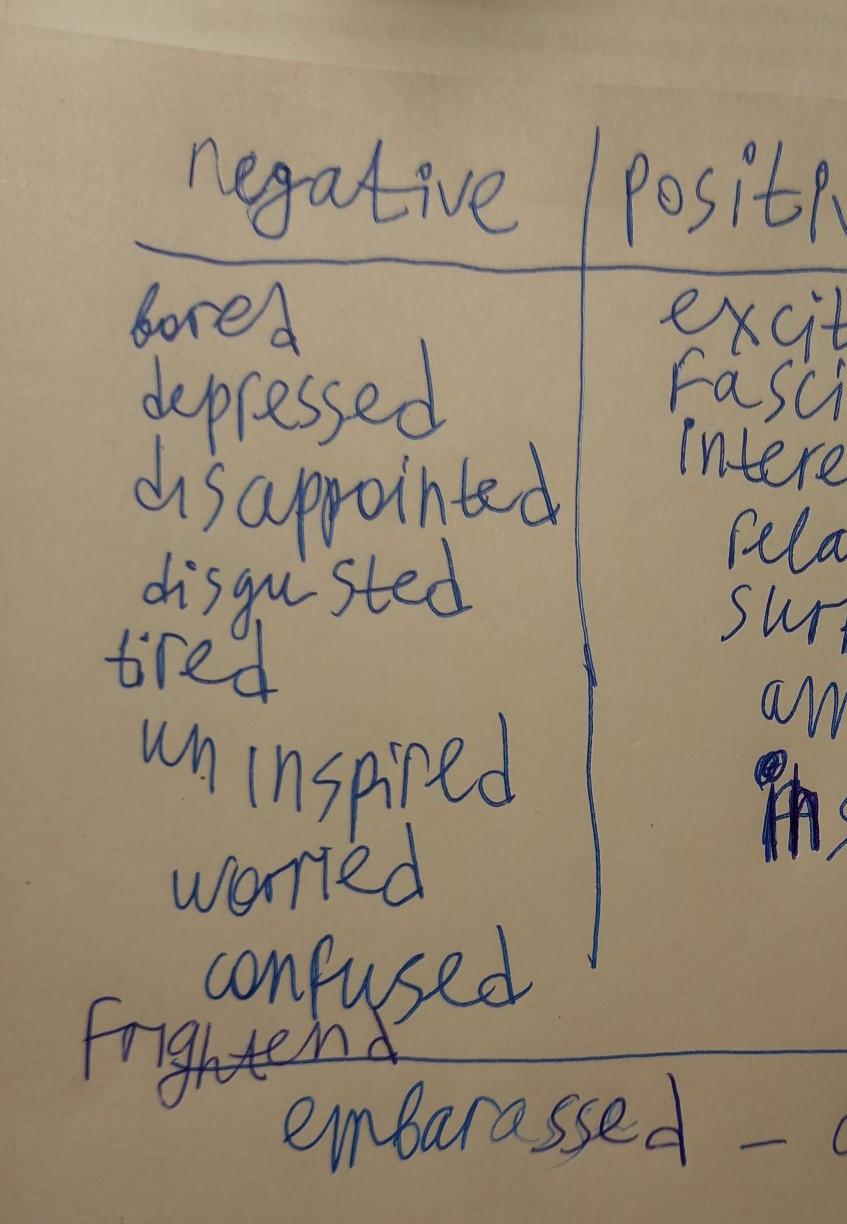 negative | positiv
bored excit
depressed Fasci
disappointed intere
disgusted rela
tired surp
un inspired am
worried ins
confused
Frightend
embarassed –